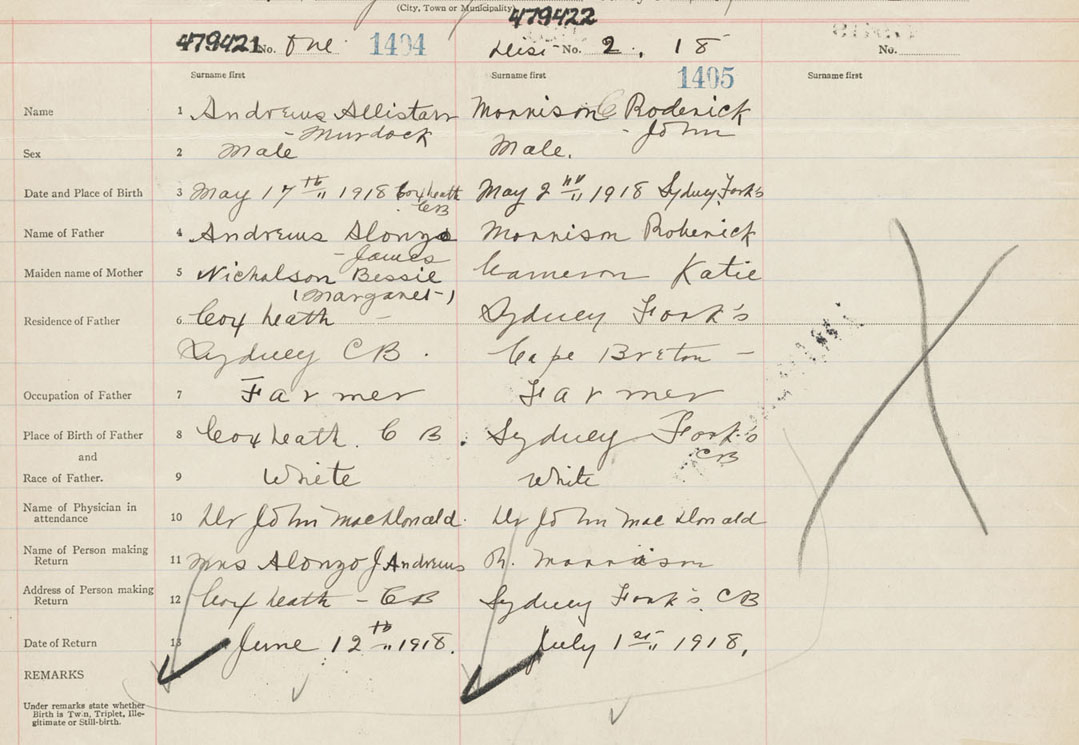 (City, Town or Municipality)
479421 No. One 1404 479422 No. 2, 18 No.
1405
Surname first Surname first Surname first
Name 1 Andrews Allistarr Morrison Roderick
- Murdock - John
Sex 2 Male Male.
Date and Place of Birth 3 May 17th 1918 Coxheath May 2nd 1918 Sydney Fork's
CB
Name of Father 4 Andrews Alonzo Morrison Roderick
- James
Maiden name of Mother 5 Nicholson Bessie Cameron Katie
(Margaret)
Residence of Father 6 Cox heath - Sydney Fork's
Sydney CB. Cape Breton -
Occupation of Father 7 Farmer Farmer
Place of Birth of Father 8 Coxheath. C B. Sydney Fork's
and CB
Race of Father. 9 White White
Name of Physician in attendance 10 Dr John MacDonald. Dr John MacDonald
Name of Person making Return 11 Mrs Alonzo J Andrews R. Morrison
Address of Person making Return 12 Cox heath - CB Sydney Fork's. CB
Date of Return 13 June 12th 1918. July 1st 1918,
REMARKS
Under remarks state whether
Birth is Twin, Triplet, Ille-
gitimate or Still-birth.